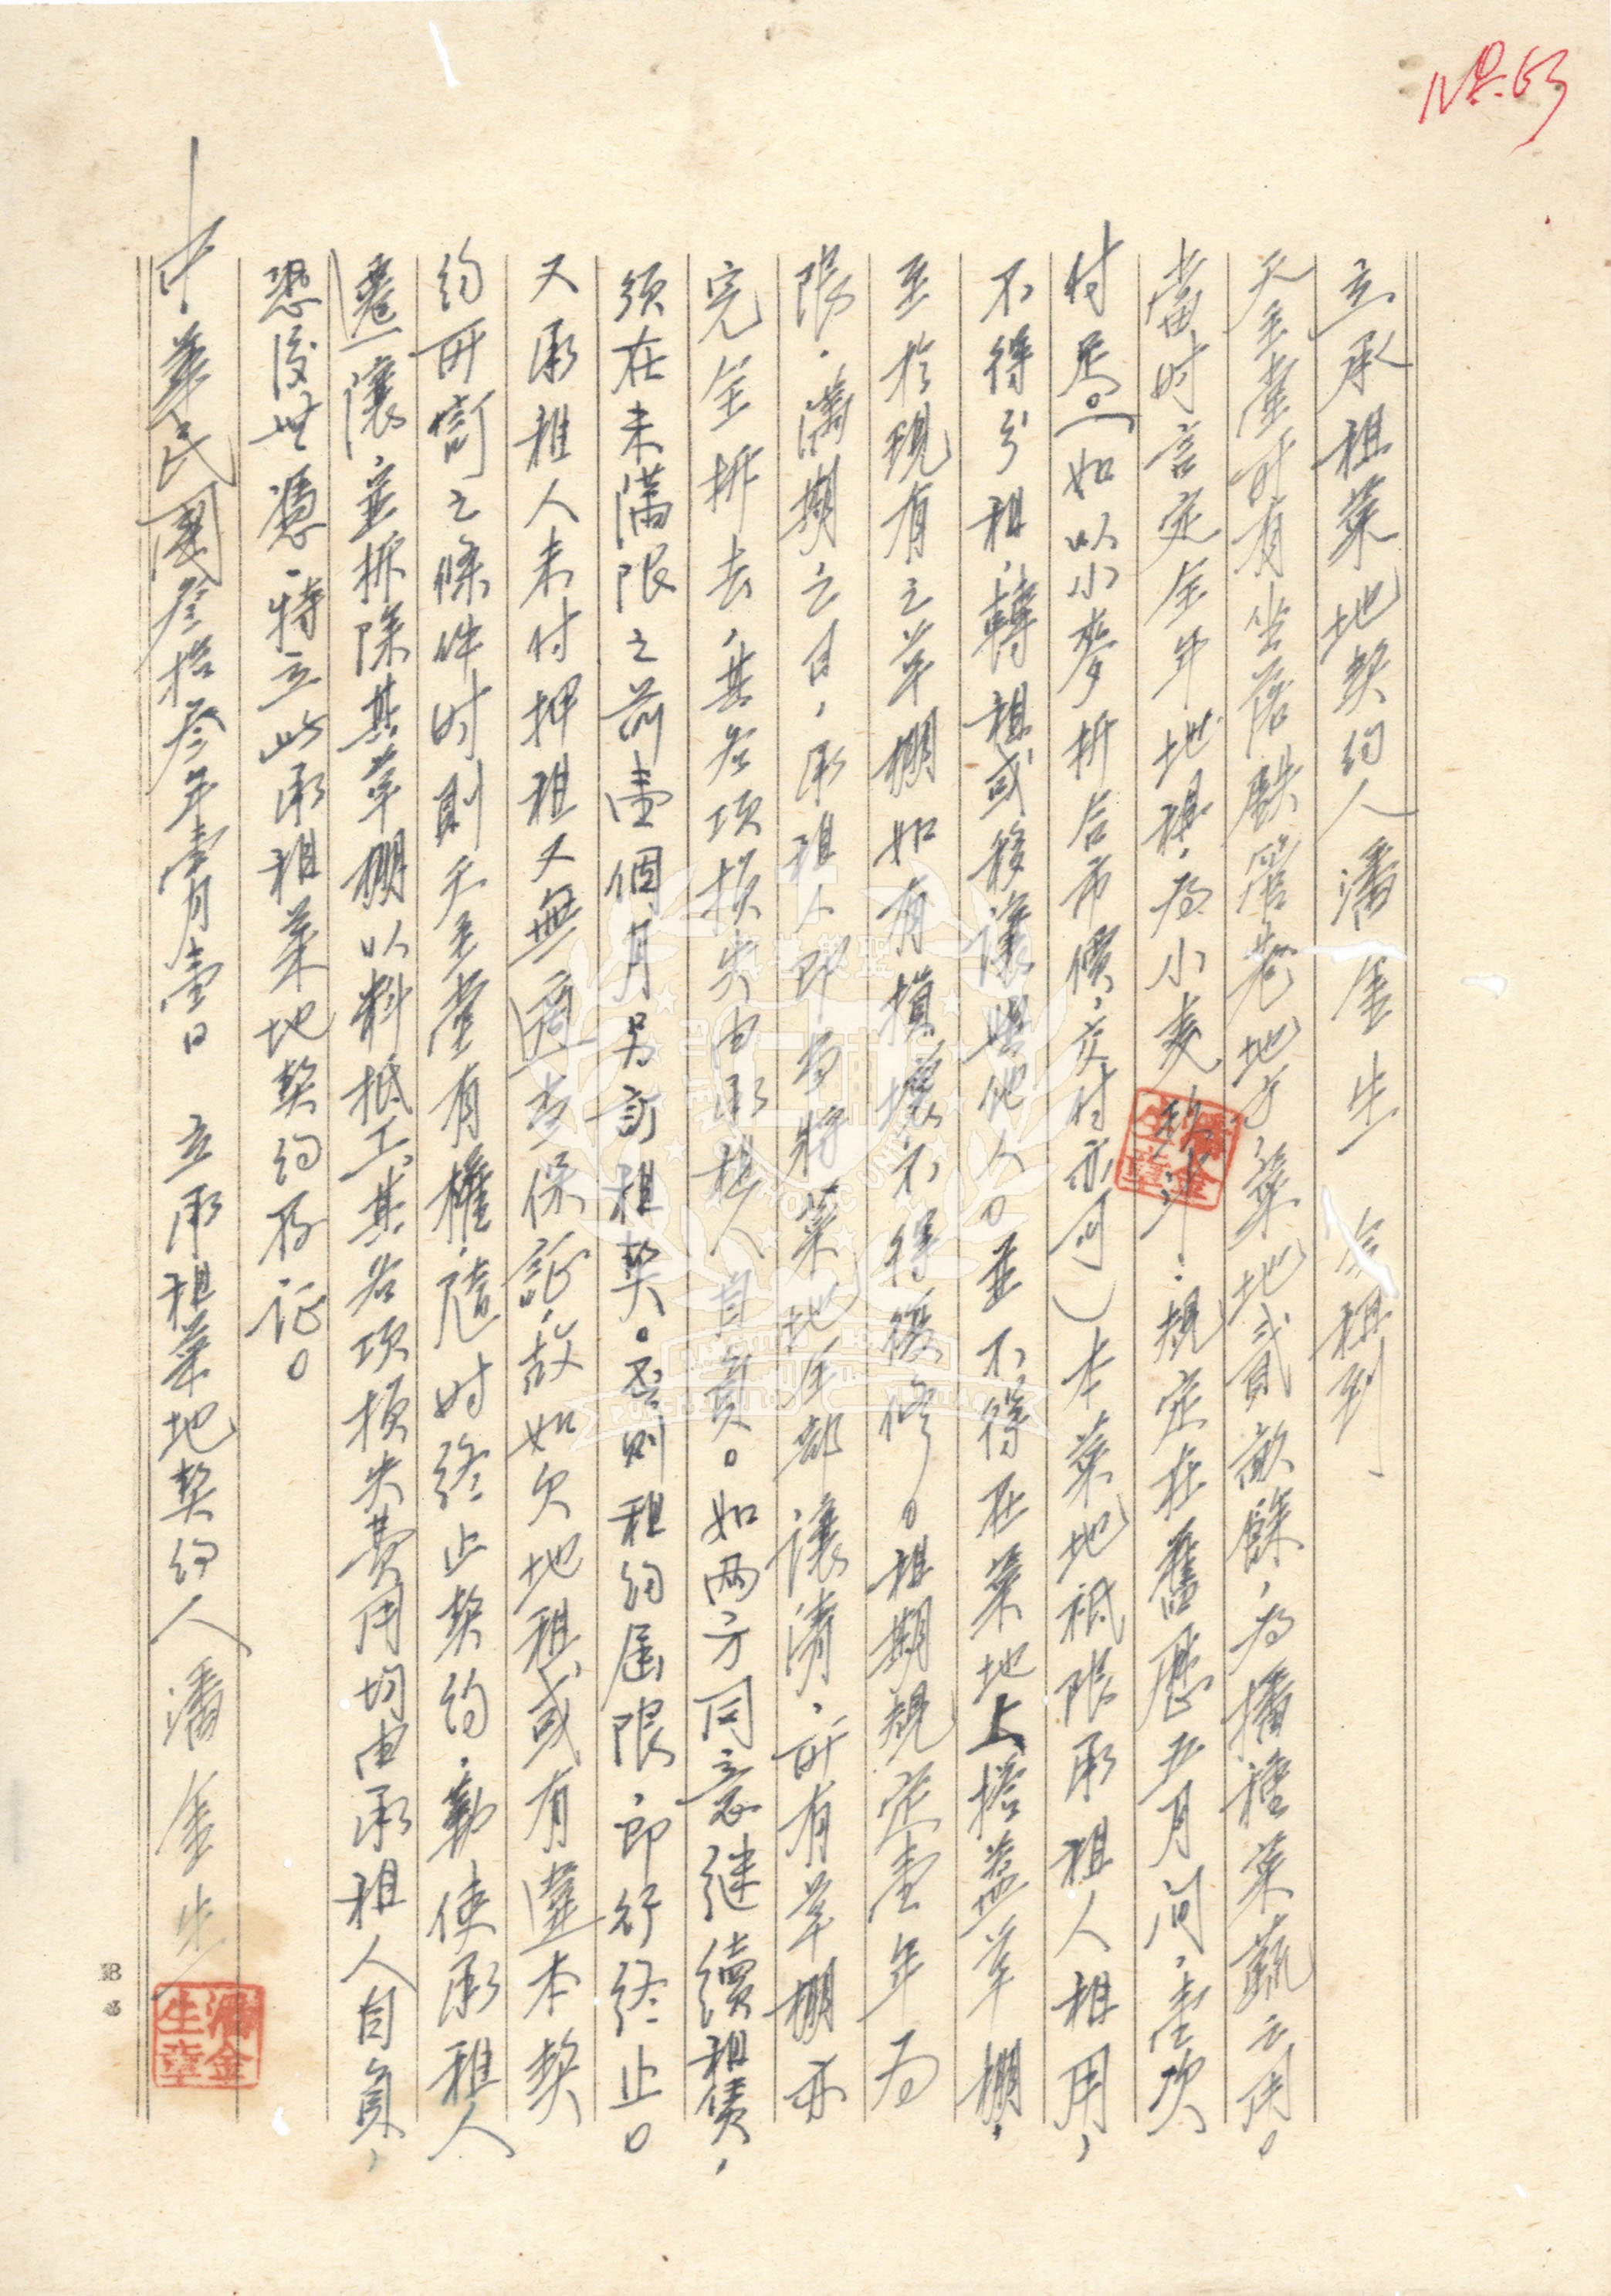 No. 63
立承租菜地契約人潘金生 今租到
天主堂所有坐落鉄管巷地方菜地貳畝餘，為播種菜蔬之用。
當时言定全年地租，為小麦 斗，規定在舊曆五月间，壹次
付足。（如以小麥折合市價，交付亦可）本菜地祇限承租人租用，
不得分租，轉租或移讓與他人。並不得在菜地上搭蓋草棚，
至於現有之草棚如有損壞不得復修。租期規定壹年为
限，滿期之日，承租人即与將菜地全部讓清，所有草棚亦
完全拆去，其各項損失由承租人自負。如两方同意继續租賃，
須在未滿限之前壹個月另訂租契。否則租約屆限，即行終止。
又承租人未付押租又無適当保証，故如欠地租或有違本契
約所訂之條件时則天主堂有權，隨时終止契約，勒使承租人
遷讓，並拆除其草棚以料抵工其各項損失費用均由承租人自負，
恐後無憑，特立此承租菜地契約存证。
中華民國叄拾叄年壹月壹日 立承租菜地契約人潘金生
潘金生章
潘金生章